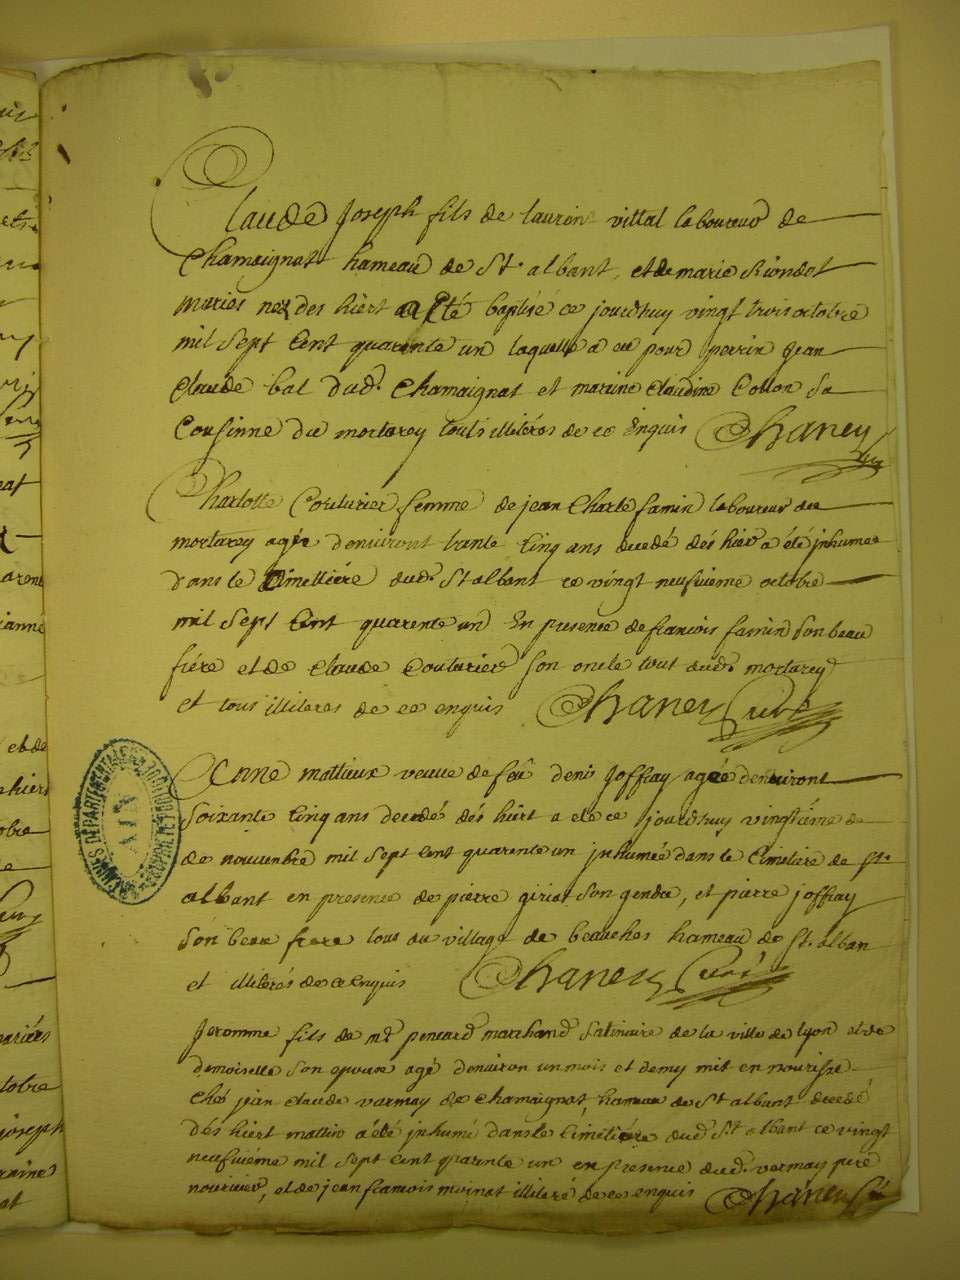 Claude Joseph fils de laurent vittal laboureur de
Chamaignat hameau de St. albant, et de marie Riondet
maries nez des hiert a esté baptisé ce jourdhuy vingt trois octobre
mil sept Cent quarente un laquelle a eu pour perrin jean
Claude bal dud. Chamaignat et marine Claudine Coilon Sa
Cousinne du mortarey touts illiterés de ce Enquis Chaney
Charlotte Couturier femme de jean Charle famin laboureur du
mortarey agée denviront trante Cinq ans decedé dés hier a été inhumee
dans le Cimettiére dud. St albant ce vingt neufvieme octobre
mil Sept Cent quarente un En presence de francois famin Son beau
frére et de Claude Couturier Son oncle tout dud. mortarey
et tous illiteres de ce enquis Chaney Curé
mattiux veuve de feu denis Joffray agée denviront
Soixante Cinq ans decedé dés hiert a ete ce jourdhuy vingtiéme de
de novembre mil sept Cent quarente un inhumée dans le Cimetiere de St.
albant en presence de pierre giriat Son gendre, et pierre joffray
Son beau frere tous du village de beauches hameau de St. alban
et illiterés de ce Enquis Chaney Curé
Jeromme fils de mr. penard marchand Satinaire de la ville de lyon et de
demoiselle Son epouse agé denviron un mois et demy mit en nourisse
Ches jean Claude varmay de Chamaignat, hameau de St albant decedé
Dés hiert mattin a été inhumé dans le Cimetiére dud. St albant ce vingt
neufviéme mil Sept Cent quarente un en presence dud. vermay pere
nouricier, et de jean francois moinat illiteré de ce enquis Chaney Curé
ARCHIVES DÉPARTEMENTALES
AIN